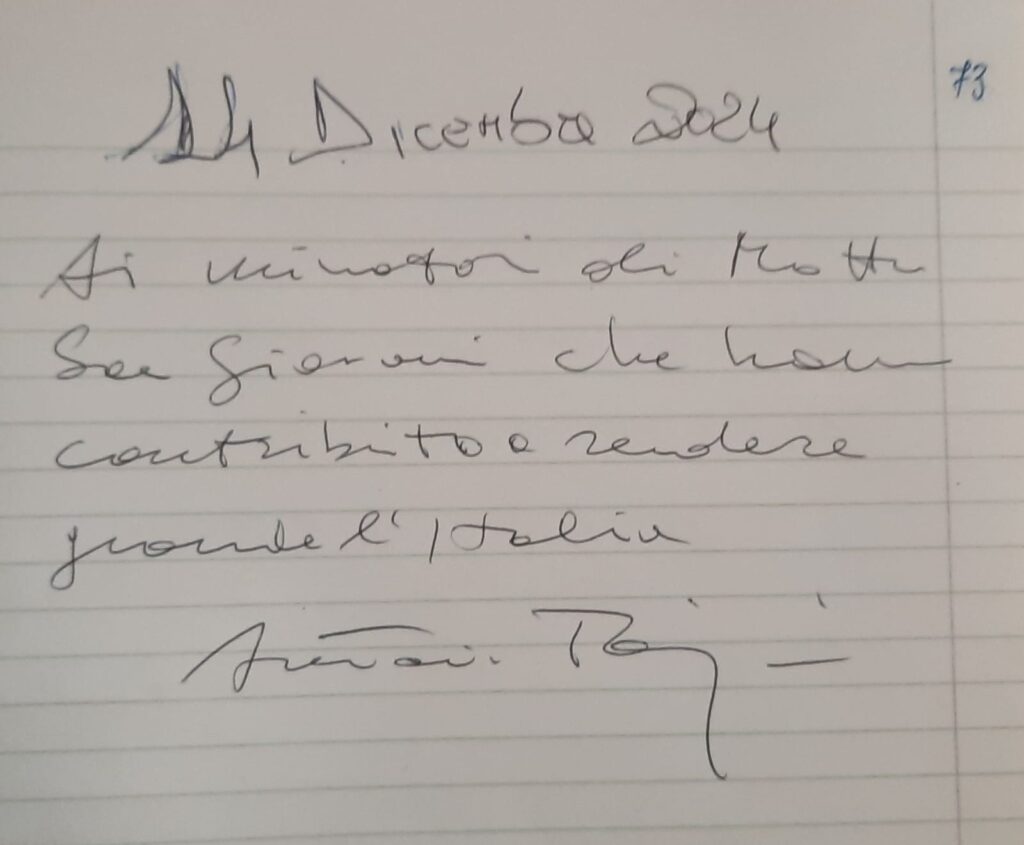 73
14 Dicembre 2024
Ai minatori di Motta
San Giovanni che hanno
contribuito a rendere
grande l'Italia
Antonio Tajani